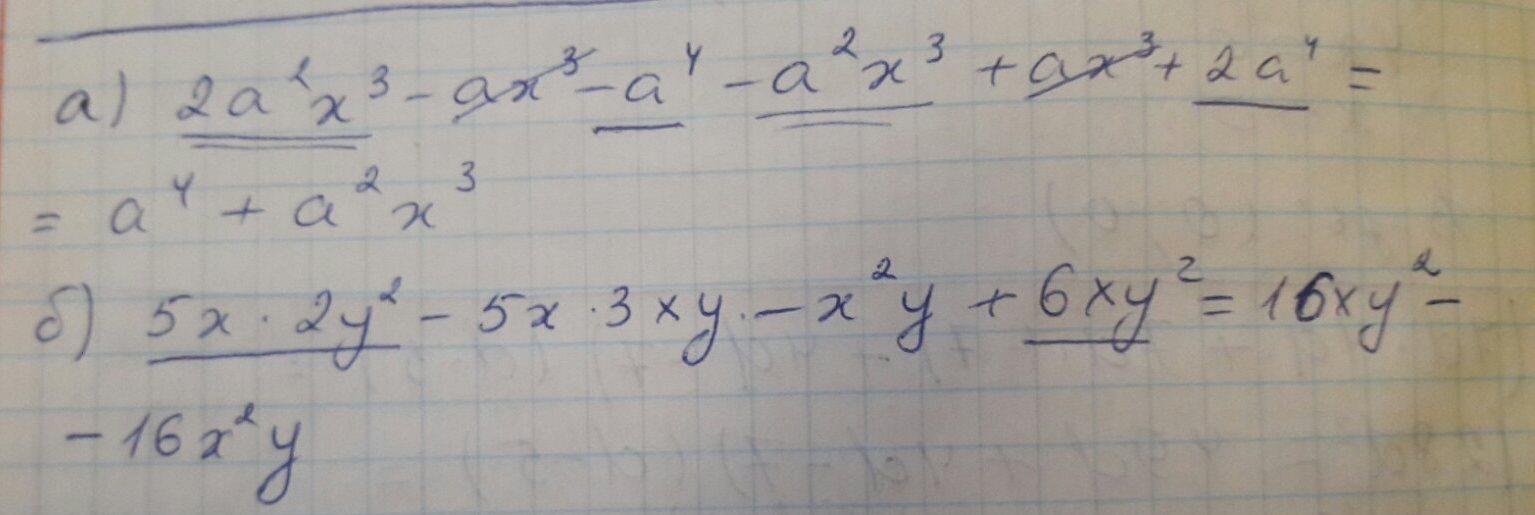 а) 2a²x³ - ax³ - a⁴ - a²x³ + ax³ + 2a⁴ =
= a⁴ + a²x³
б) 5x · 2y² - 5x · 3xy - x²y + 6xy² = 16xy² -
- 16x²y